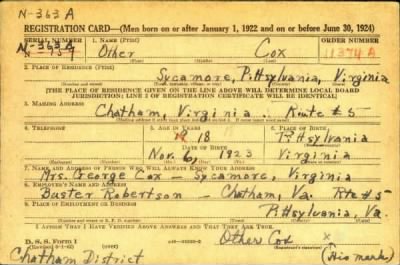 N-363A
REGISTRATION CARD—(Men born on or after January 1, 1922 and on or before June 30, 1924)
SERIAL NUMBER 1. NAME (Print) ORDER NUMBER
N-363A
Other Cox 11374A
2. PLACE OF RESIDENCE (Print)
Sycamore, Pittsylvania, Virginia
[THE PLACE OF RESIDENCE GIVEN ON THE LINE ABOVE WILL DETERMINE LOCAL BOARD
JURISDICTION; LINE 2 OF REGISTRATION CERTIFICATE WILL BE IDENTICAL]
3. MAILING ADDRESS
Chatham, Virginia Route #5
4. TELEPHONE 5. AGE IN YEARS 6. PLACE OF BIRTH
18 Pittsylvania
DATE OF BIRTH
Nov. 6, 1923 Virginia
7. NAME AND ADDRESS OF PERSON WHO WILL ALWAYS KNOW YOUR ADDRESS
Mrs. George Cox — Sycamore, Virginia
8. EMPLOYER'S NAME AND ADDRESS
Buster Robertson — Chatham, Va. Rte #5
9. PLACE OF EMPLOYMENT OR BUSINESS
Pittsylvania, Va.
I AFFIRM THAT I HAVE VERIFIED ABOVE ANSWERS AND THAT THEY ARE TRUE.
D. S. S. Form 1
Other Cox x
Chatham District (His mark)